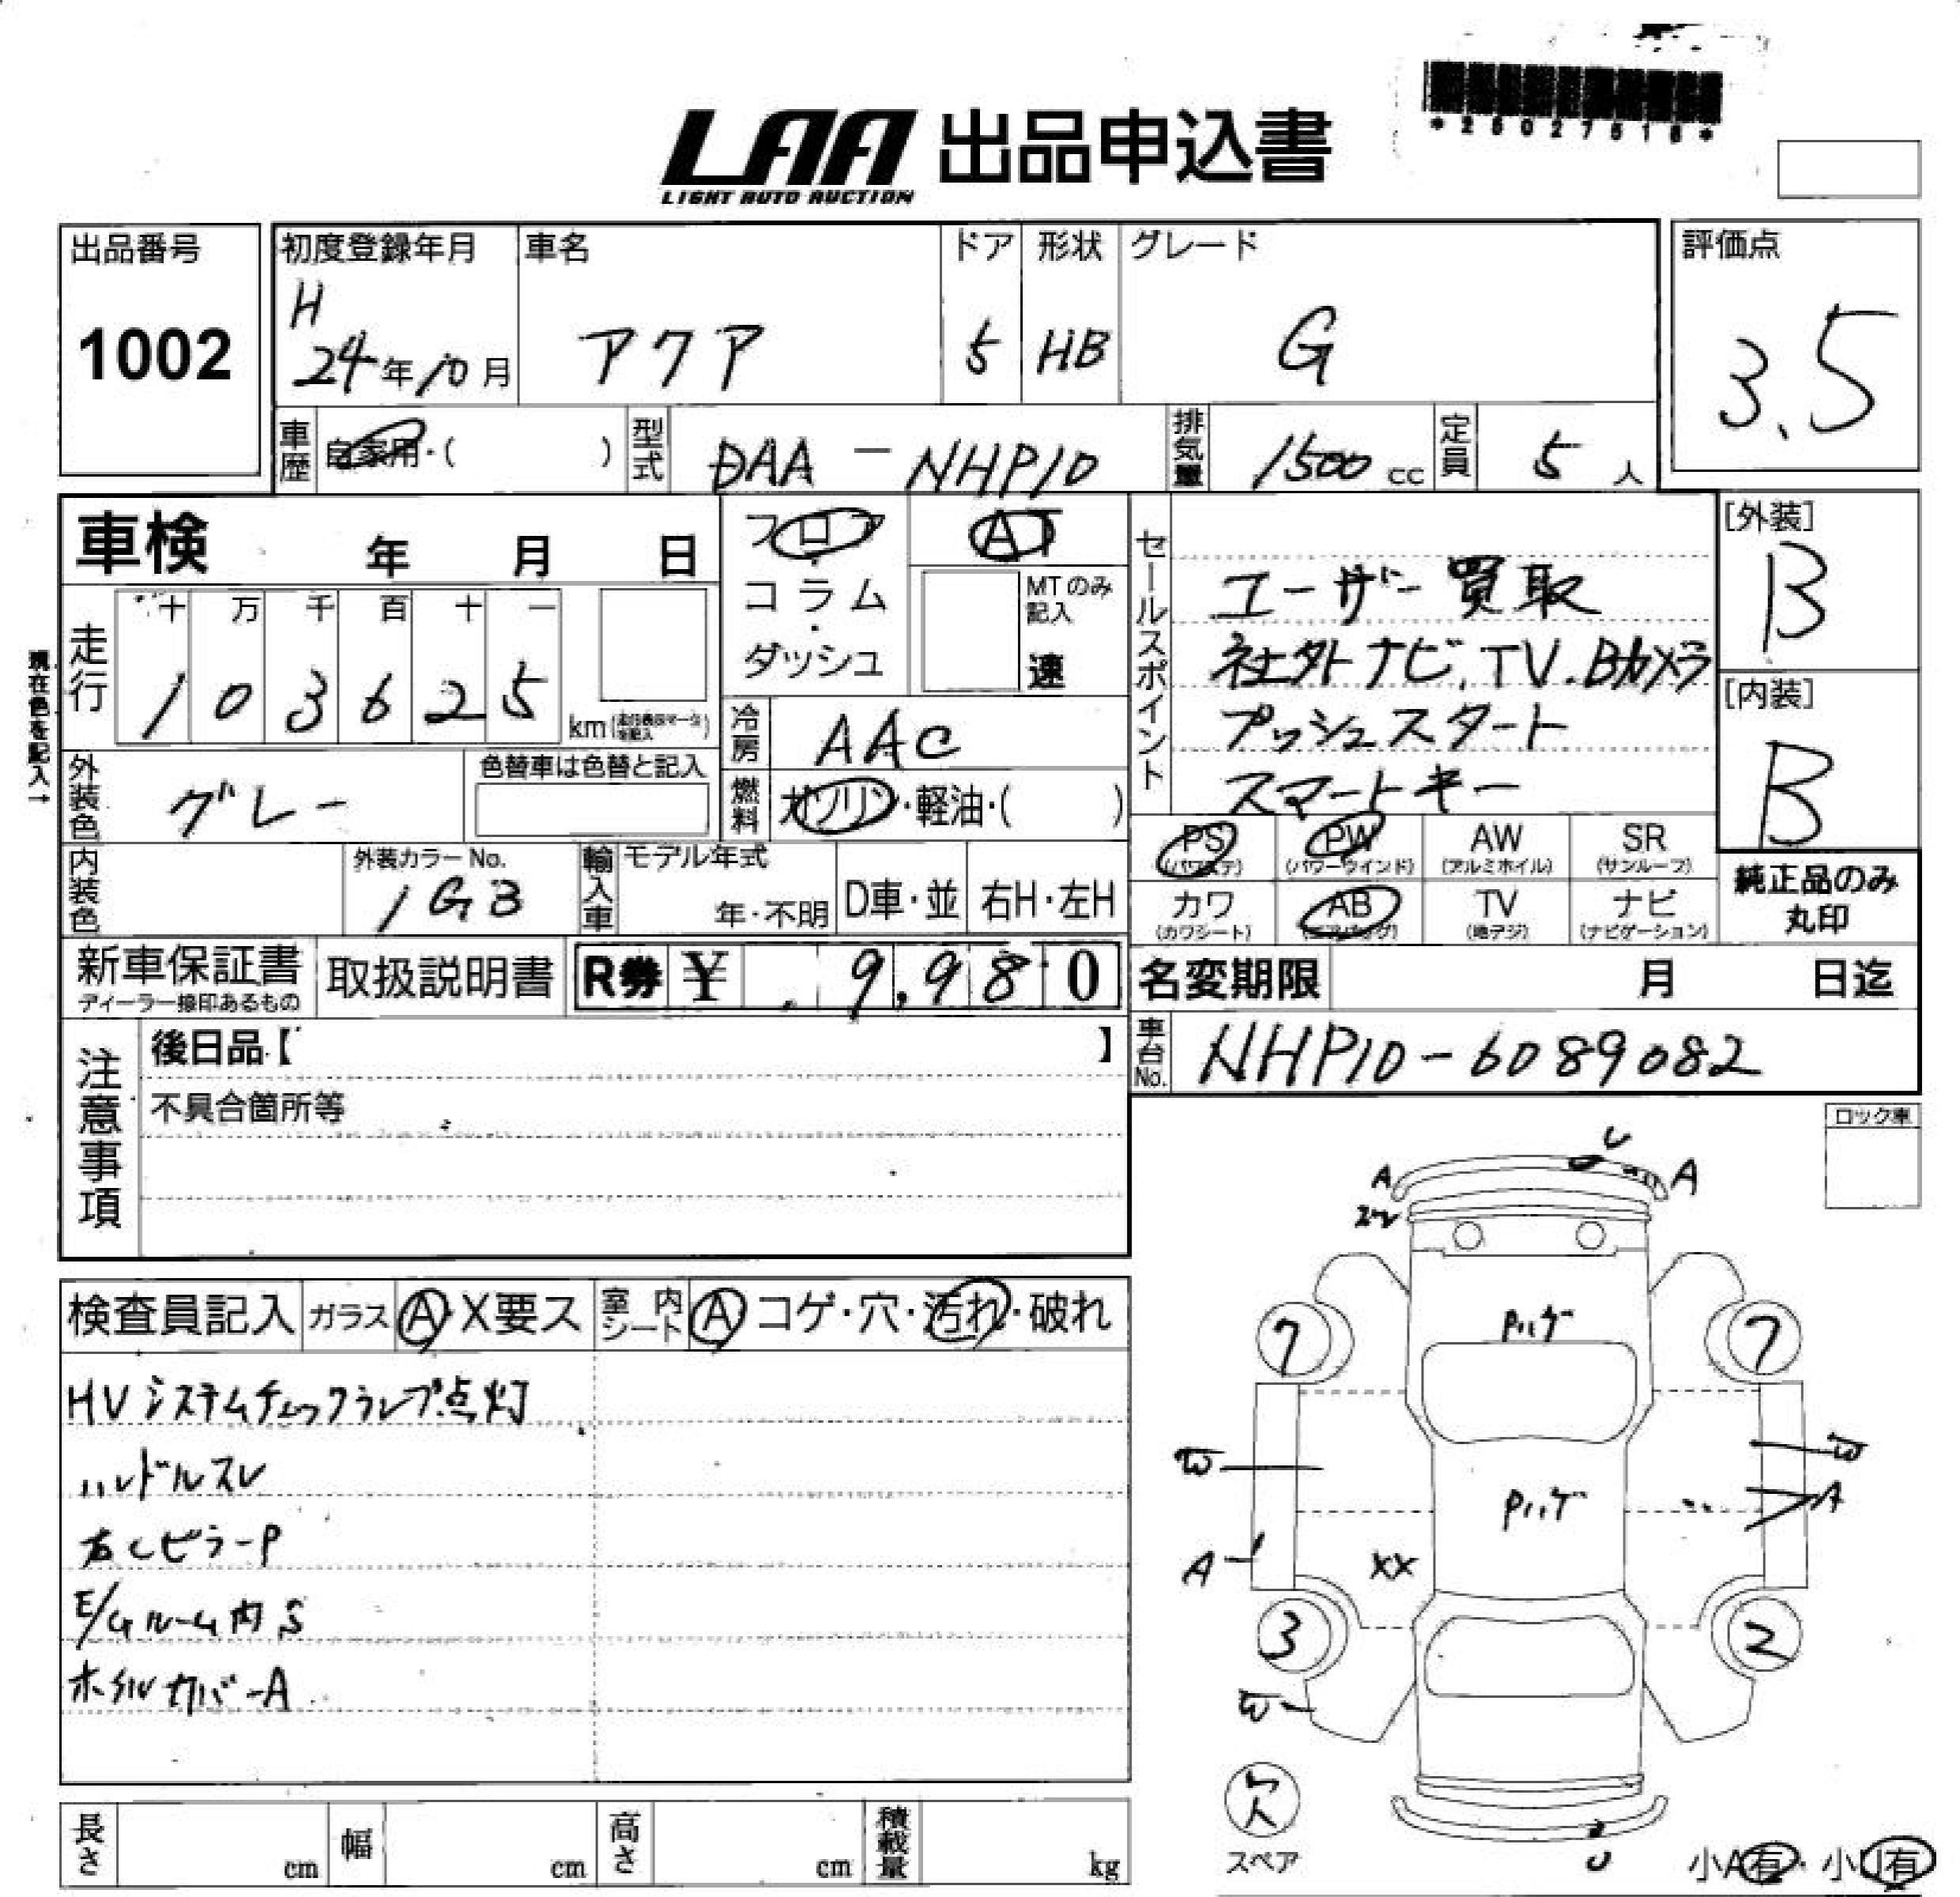 *25027518*
LAA 出品申込書
LIGHT AUTO AUCTION
出品番号
1002
初度登録年月
H
24年10月
車名
アクア
ドア
5
形状
HB
グレード
G
評価点
3.5
車歴
自家用・( )
型式
DAA-NHP10
排気量
1500 cc
定員
5 人
車検 年 月 日
フロア
・
コラム
・
ダッシュ
AT
MTのみ
記入
速
セールスポイント
ユーザー買取
社外ナビ.TV.Bカメラ
プッシュスタート
スマートキー
[外装]
B
[内装]
B
現在色を記入→
走行
十 万 千 百 十 一
1 0 3 6 2 5
km
冷房
AAC
外装色
グレー
色替車は色替と記入
燃料
ガソリン・軽油・( )
PS
(パワステ)
PW
(パワーウインド)
AW
(アルミホイル)
SR
(サンルーフ)
カワ
(カワシート)
AB
(エアバッグ)
TV
(地デジ)
ナビ
(ナビゲーション)
純正品のみ
丸印
内装色
外装カラーNo.
1G3
輸入車
モデル年式
年・不明
D車・並
右H・左H
新車保証書
ディーラー捺印あるもの
取扱説明書
R券 ¥ 9,980
名変期限 月 日迄
注意事項
後日品【 】
不具合箇所等
車台No.
NHP10-6089082
ロック車
検査員記入
ガラス
A・X要ス
室内シート
A コゲ・穴・汚れ・破れ
HVシステムチェックランプ点灯
ハンドルスレ
右CピラーP
E/Gルーム内S
ホイルカバーA
U
A
A
Pハゲ
7
7
W
W
Pハゲ
A
A
XX
3
2
W
欠
スペア
U
小A有・小U有
長さ
cm
幅
cm
高さ
cm
積載量
kg